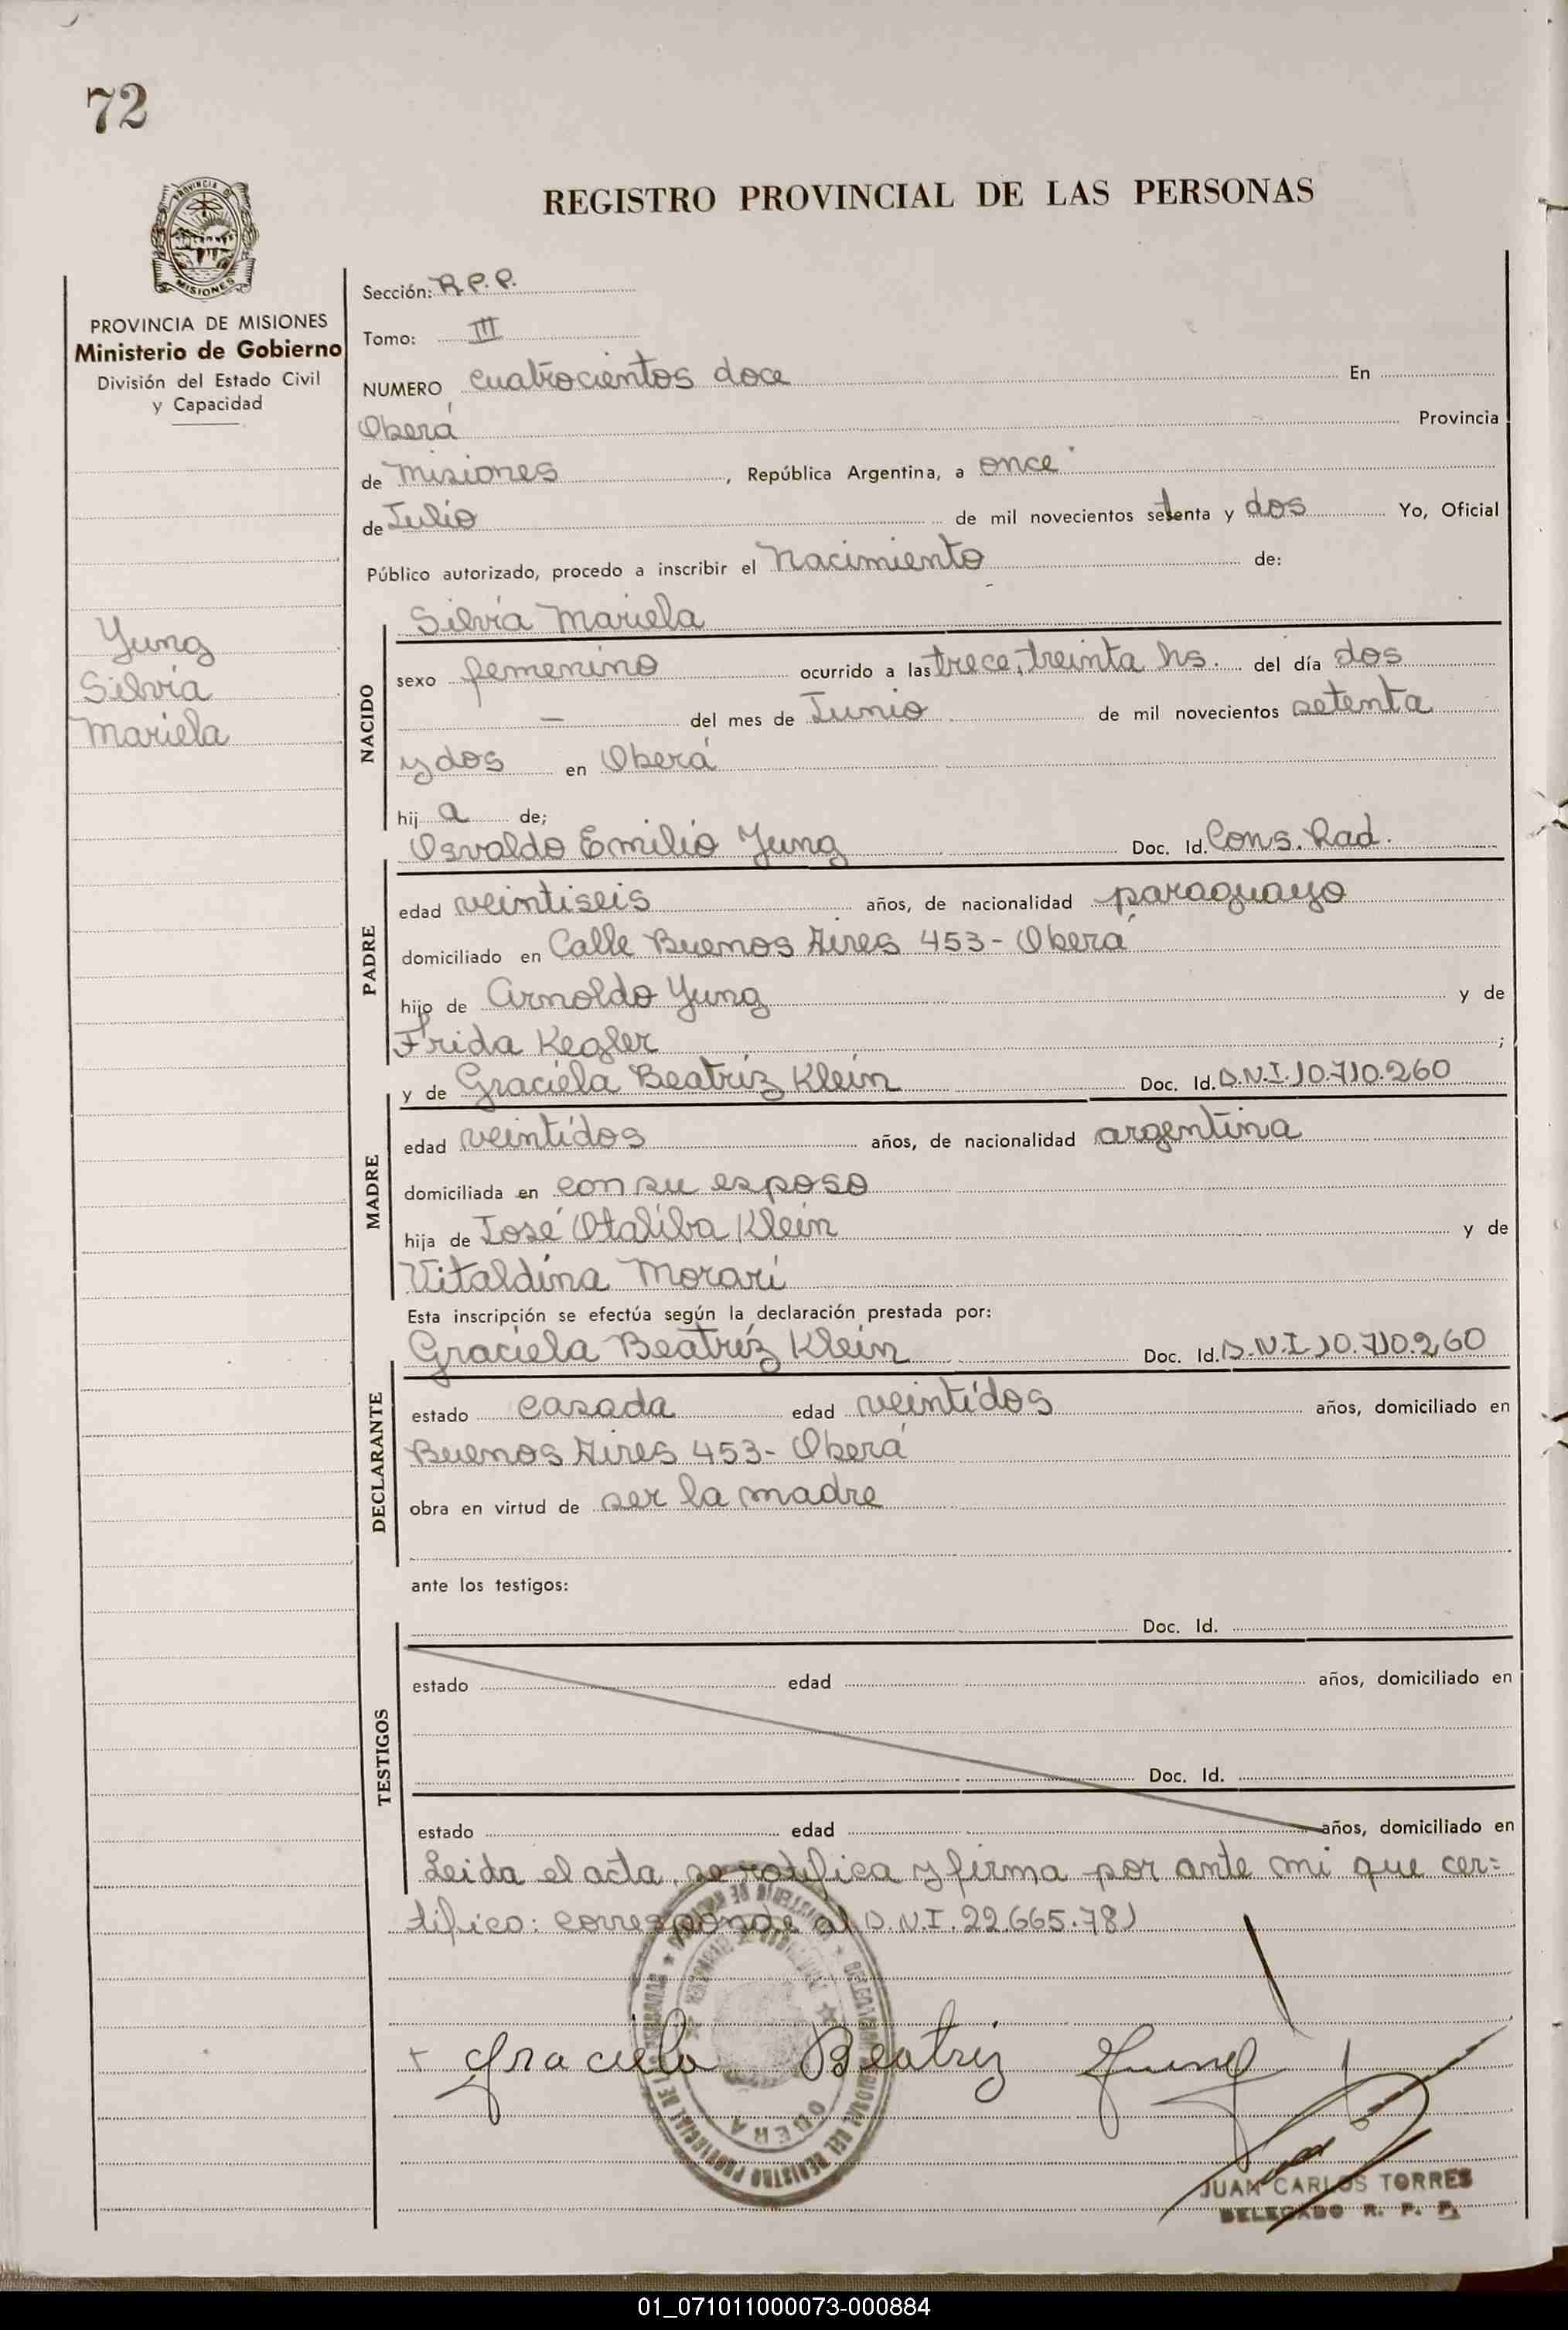 72
PROVINCIA DE
MISIONES
REGISTRO PROVINCIAL DE LAS PERSONAS
PROVINCIA DE MISIONES
Ministerio de Gobierno
División del Estado Civil
y Capacidad
Yung
Silvia
Mariela
Sección: R.P.P.
Tomo: III
NUMERO cuatrocientos doce En
Oberá Provincia
de Misiones, República Argentina, a once
de Julio de mil novecientos setenta y dos Yo, Oficial
Público autorizado, procedo a inscribir el Nacimiento de:
NACIDO
Silvia Mariela
sexo femenino ocurrido a las trece, treinta hs. del día dos
— del mes de Junio de mil novecientos setenta
y dos en Oberá
hij a de;
PADRE
Osvaldo Emilio Yung Doc. Id. Cons. Rad.
edad veintiseis años, de nacionalidad paraguayo
domiciliado en Calle Buenos Aires 453- Oberá
hijo de Arnoldo Yung y de
Frida Kegler ;
MADRE
y de Graciela Beatríz Klein Doc. Id. D.N.I. 10.710.260
edad veintidos años, de nacionalidad argentina
domiciliada en con su esposo
hija de José Otaliba Klein y de
Vitaldina Morari
Esta inscripción se efectúa según la declaración prestada por:
DECLARANTE
Graciela Beatríz Klein Doc. Id. D.N.I 10.710.260
estado casada edad veintidos años, domiciliado en
Buenos Aires 453- Oberá
obra en virtud de ser la madre
ante los testigos:
TESTIGOS
Doc. Id.
estado edad años, domiciliado en
Doc. Id.
estado edad años, domiciliado en
Leida el acta, se ratifica y firma por ante mi que cer=
tifico: corresponde al D.N.I. 22.665.781
Graciela Beatriz Yung
OBERA
JUAN CARLOS TORRES
DELEGADO R. P. P.
01_071011000073-000884